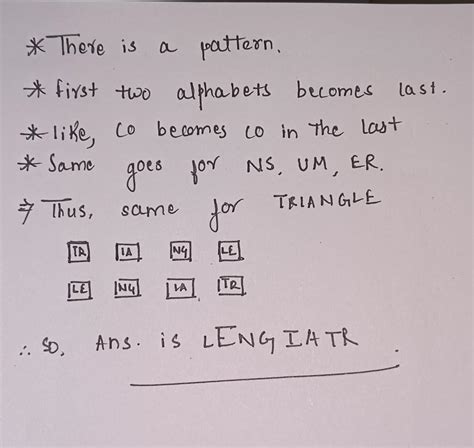 * There is a pattern.
* first two alphabets becomes last.
* like, CO becomes CO in the last
* Same goes for NS, UM, ER.
⇒ Thus, same for TRIANGLE
TR IA NG LE
LE NG IA TR
∴ So, Ans. is LENGIATR.